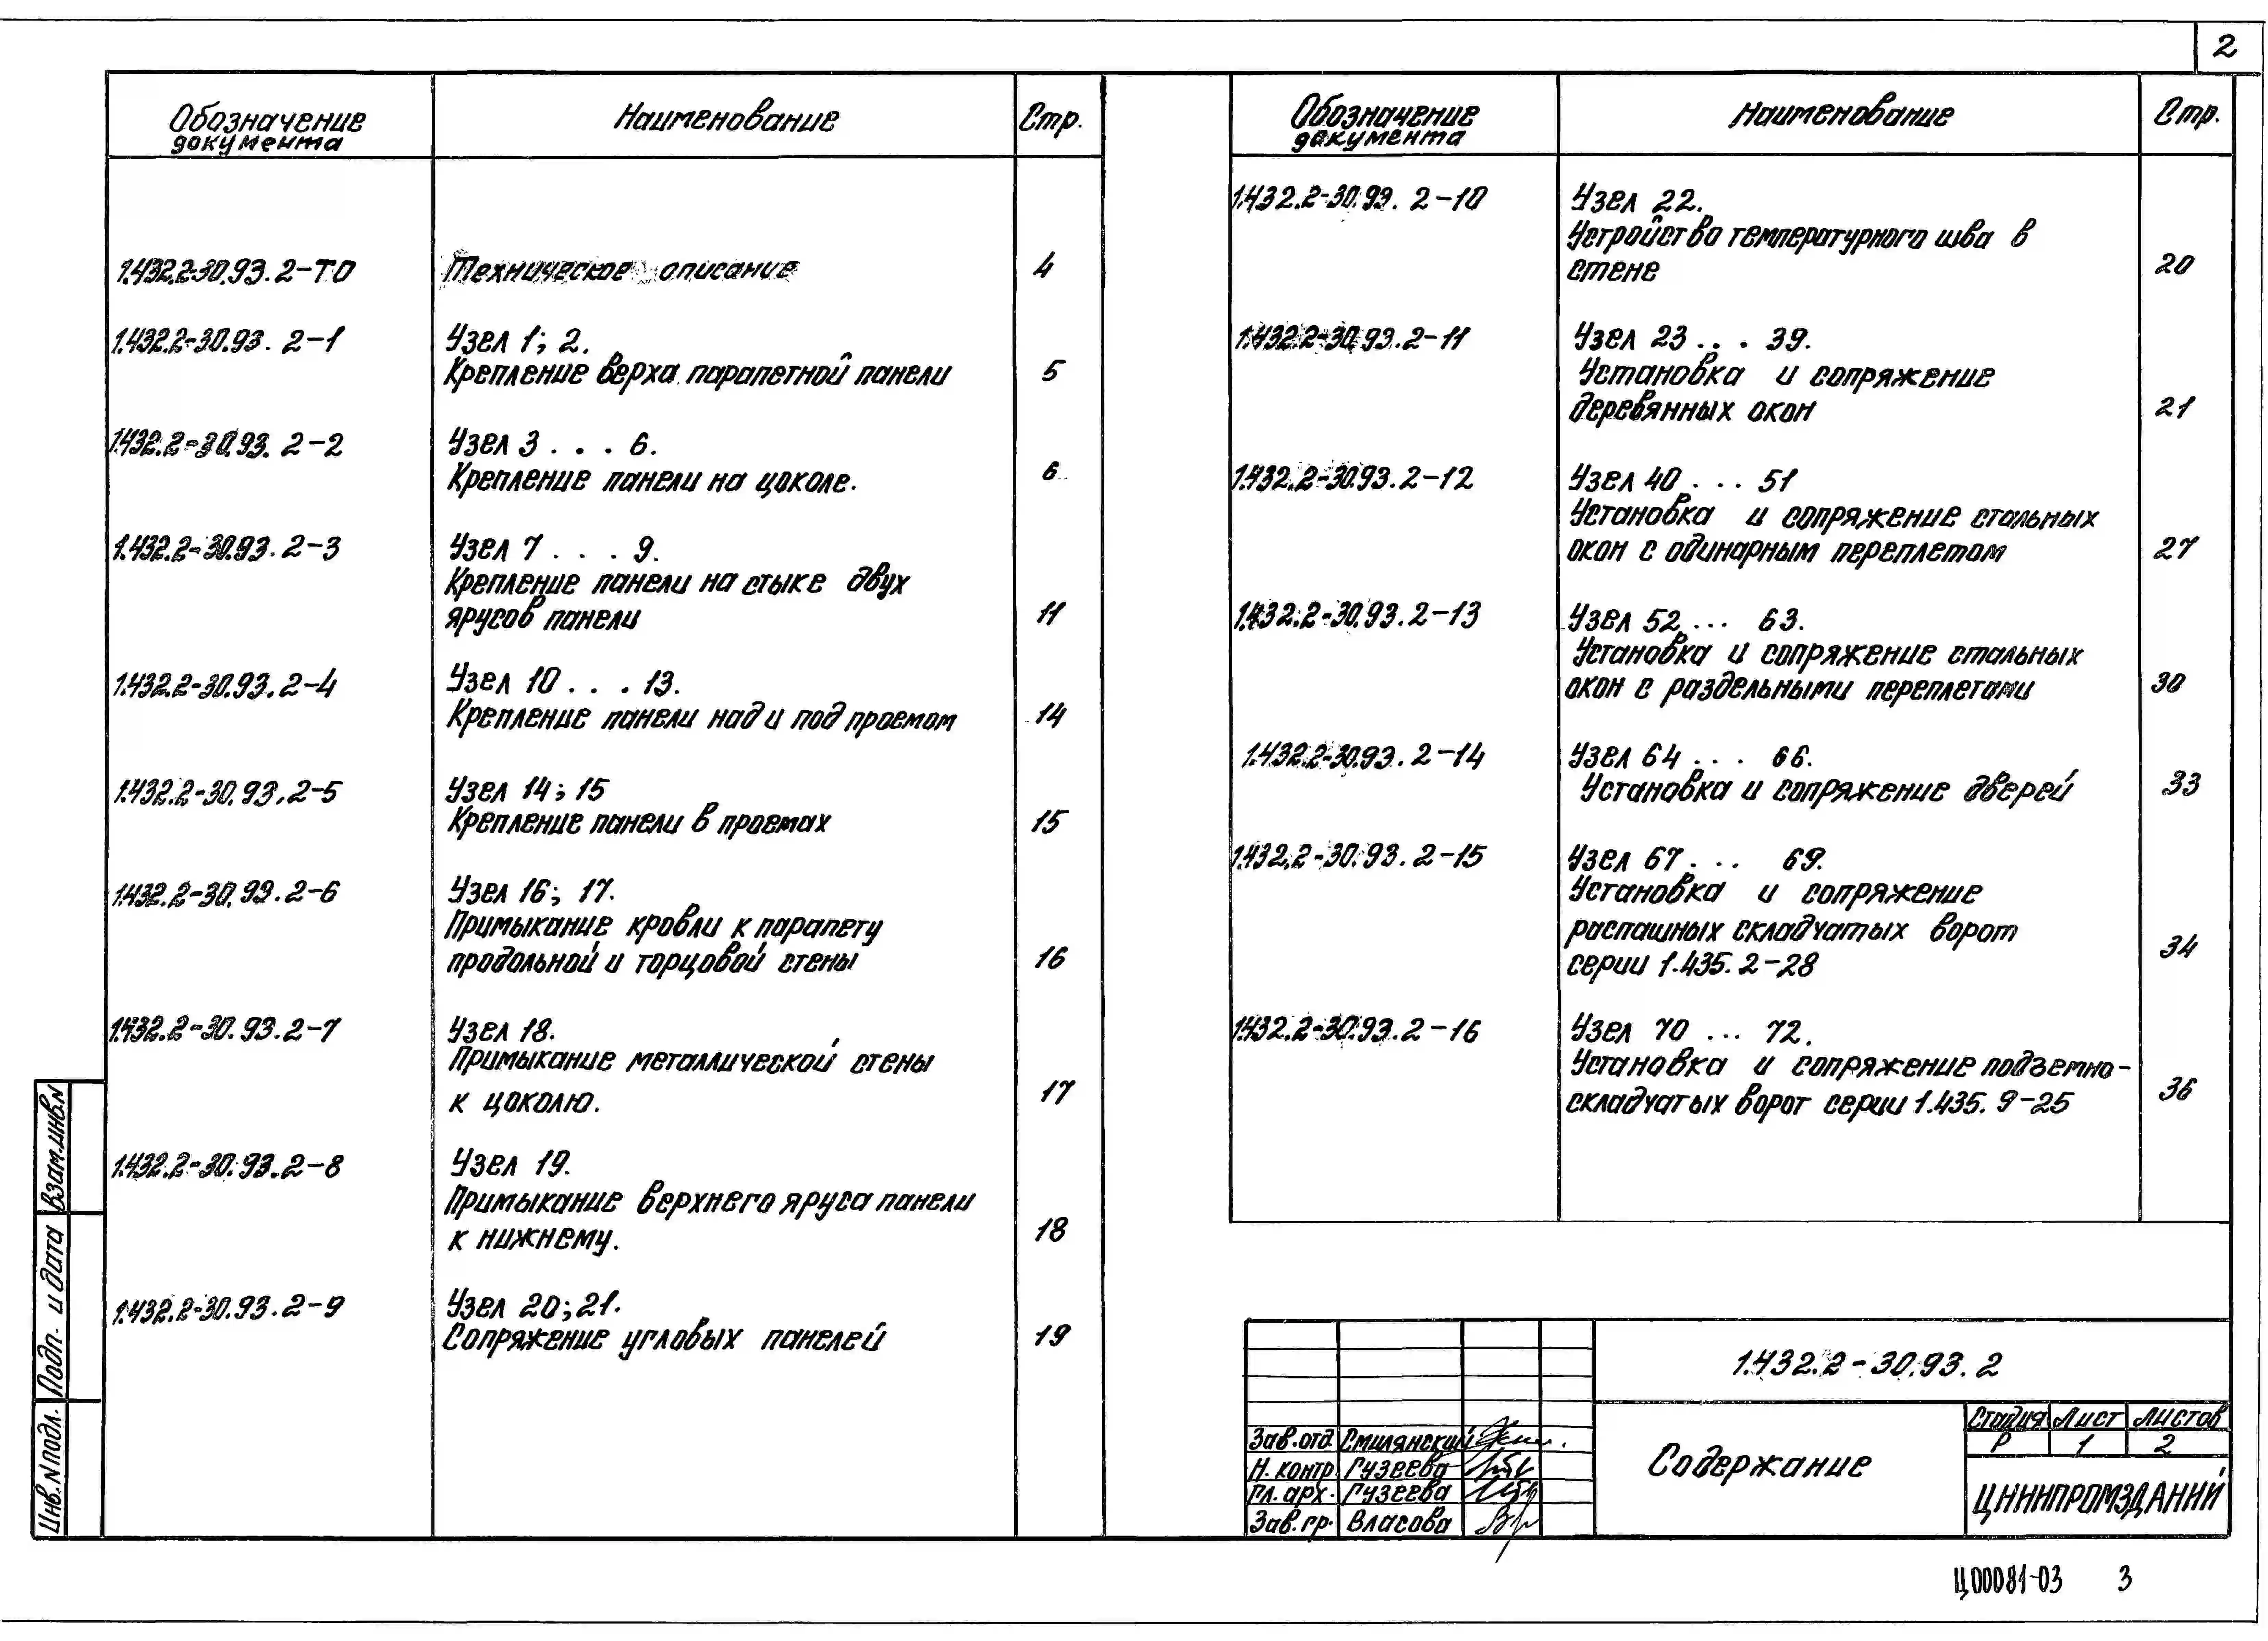 2
Обозначение документа Наименование Стр.
1.432.2-30.93.2-ТО Техническое описание 4
1.432.2-30.93.2-1 Узел 1; 2.
Крепление верха парапетной панели 5
1.432.2-30.93.2-2 Узел 3 . . . 6.
Крепление панели на цоколе. 6
1.432.2-30.93.2-3 Узел 7 . . . 9.
Крепление панели на стыке двух
ярусов панели 11
1.432.2-30.93.2-4 Узел 10 . . . 13.
Крепление панели над и под проемом 14
1.432.2-30.93.2-5 Узел 14; 15
Крепление панели в проемах 15
1.432.2-30.93.2-6 Узел 16; 17.
Примыкание кровли к парапету
продольной и торцовой стены 16
1.432.2-30.93.2-7 Узел 18.
Примыкание металлической стены
к цоколю. 17
1.432.2-30.93.2-8 Узел 19.
Примыкание верхнего яруса панели
к нижнему. 18
1.432.2-30.93.2-9 Узел 20; 21.
Сопряжение угловых панелей 19
Обозначение документа Наименование Стр.
1.432.2-30.93.2-10 Узел 22.
Устройство температурного шва в
стене 20
1.432.2-30.93.2-11 Узел 23 . . . 39.
Установка и сопряжение
деревянных окон 21
1.432.2-30.93.2-12 Узел 40 . . . 51
Установка и сопряжение стальных
окон с одинарным переплетом 27
1.432.2-30.93.2-13 Узел 52 ... 63.
Установка и сопряжение стальных
окон с раздельными переплетами 30
1.432.2-30.93.2-14 Узел 64 . . . 66.
Установка и сопряжение дверей 33
1.432.2-30.93.2-15 Узел 67 . . . 69.
Установка и сопряжение
распашных складчатых ворот
серии 1.435.2-28 34
1.432.2-30.93.2-16 Узел 70 ... 72.
Установка и сопряжение подъемно-
складчатых ворот серии 1.435.9-25 36
Взам.инв.N
Подп. и дата
Инв.N подл.
1.432.2-30.93.2
Зав.отд. Смилянский
Н.контр Гузеева
Гл.арх. Гузеева
Зав.гр. Власова
Содержание
Стадия Лист Листов
Р 1 2
ЦНИИПРОМЗДАНИЙ
Ц00081-03 3